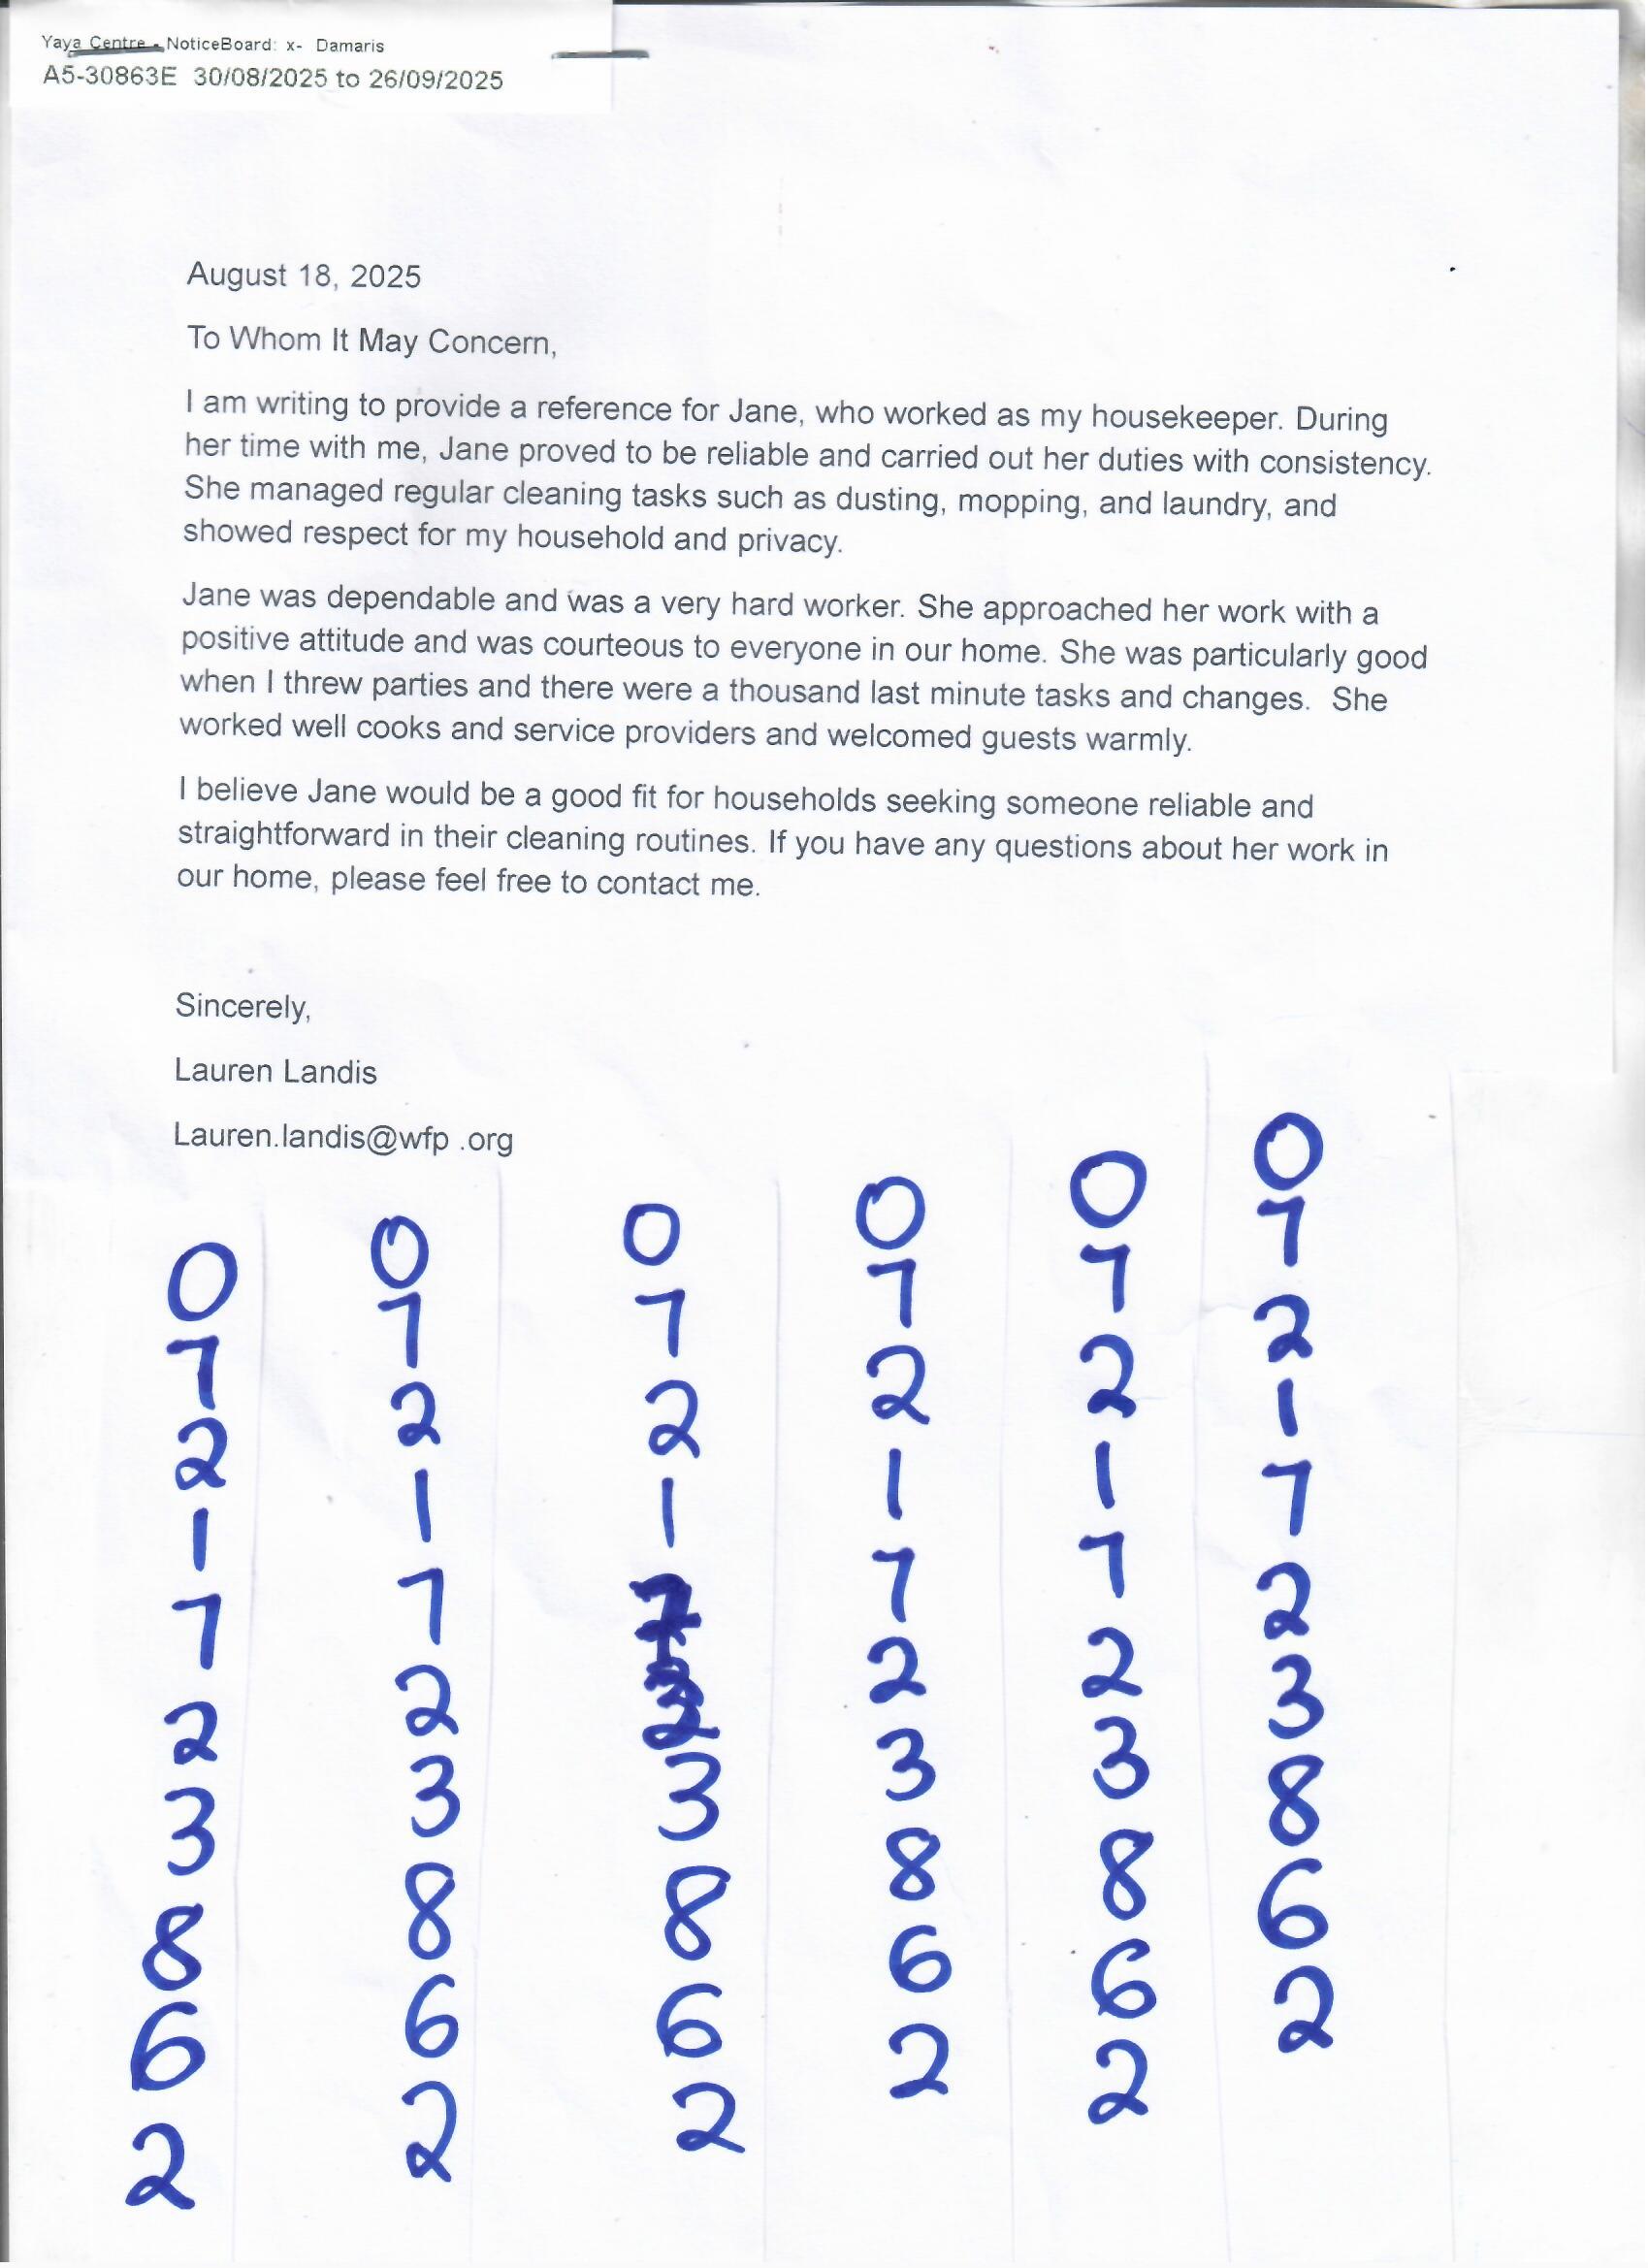 Yaya Centre - NoticeBoard: x- Damaris
A5-30863E 30/08/2025 to 26/09/2025
August 18, 2025
To Whom It May Concern,
I am writing to provide a reference for Jane, who worked as my housekeeper. During
her time with me, Jane proved to be reliable and carried out her duties with consistency.
She managed regular cleaning tasks such as dusting, mopping, and laundry, and
showed respect for my household and privacy.
Jane was dependable and was a very hard worker. She approached her work with a
positive attitude and was courteous to everyone in our home. She was particularly good
when I threw parties and there were a thousand last minute tasks and changes.  She
worked well cooks and service providers and welcomed guests warmly.
I believe Jane would be a good fit for households seeking someone reliable and
straightforward in their cleaning routines. If you have any questions about her work in
our home, please feel free to contact me.
Sincerely,
Lauren Landis
Lauren.landis@wfp .org
0721723862
0721723862
0721723862
0721723862
0721723862
0721723862